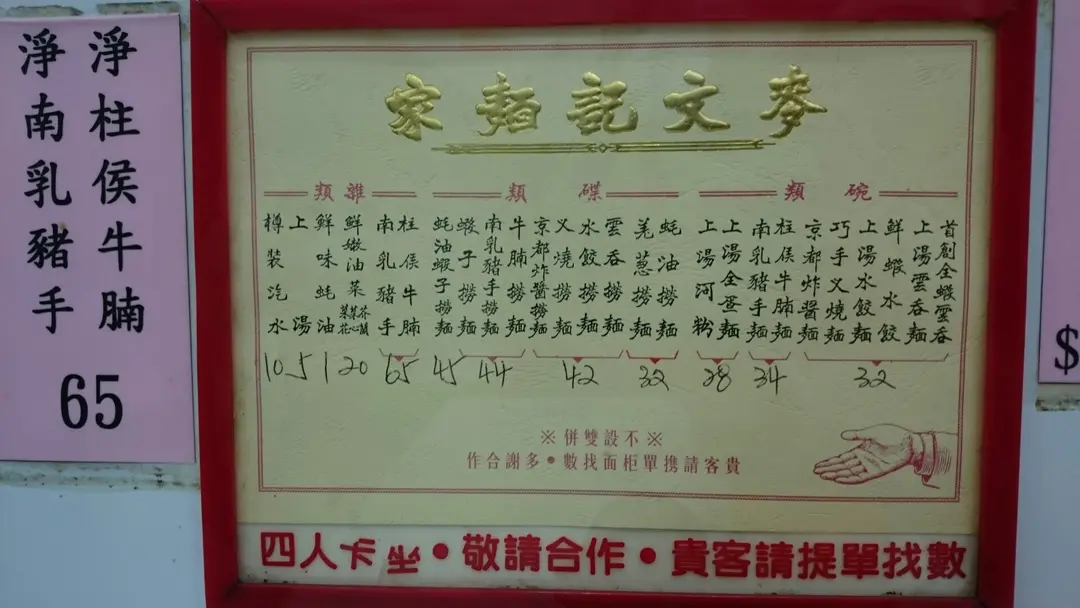 淨柱侯牛腩
淨南乳豬手
65
麥文記麵家
碗類
首創全蝦雲吞
上湯雲吞麵
鮮蝦水餃
上湯水餃麵
巧手叉燒麵
京都炸醬麵
32
柱侯牛腩麵
南乳豬手麵
34
上湯全蛋麵
上湯河粉
28
碟類
蚝油撈麵
羌葱撈麵
32
雲吞撈麵
水餃撈麵
叉燒撈麵
京都炸醬撈麵
42
牛腩撈麵
南乳豬手撈麵
44
蝦子撈麵
蚝油蝦子撈麵
45
雜類
柱侯牛腩
南乳豬手
65
鮮嫩油菜 芥蘭 菜心 菜花
20
鮮味蚝油
1
上湯
5
樽裝汽水
10
※不設雙併※
貴客請携單柜面找數•多謝合作
四人卡坐•敬請合作•貴客請提單找數
$